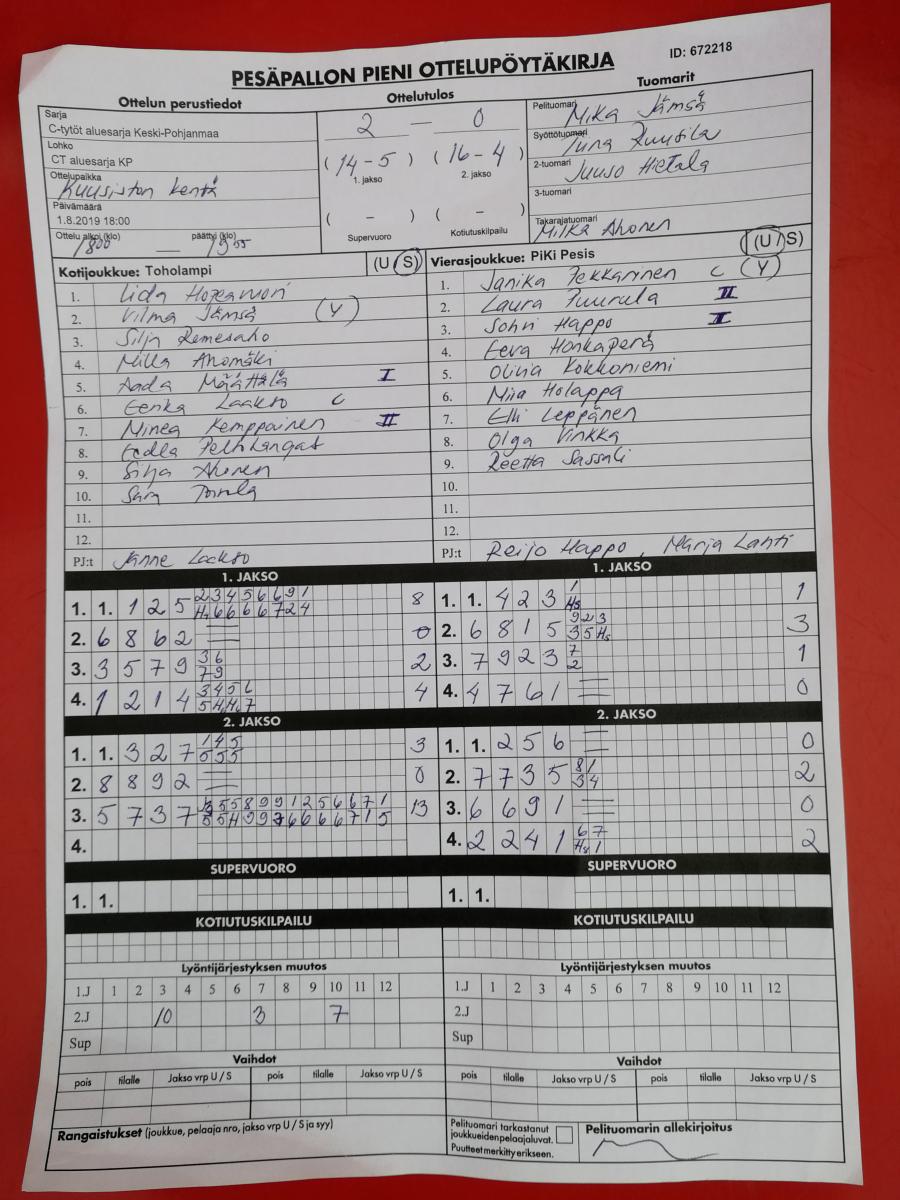 PESÄPALLON PIENI OTTELUPÖYTÄKIRJA
ID: 672218
Ottelun perustiedot
Sarja
C-tytöt aluesarja Keski-Pohjanmaa
Lohko
CT aluesarja KP
Ottelupaikka
Kuusiston kentä
Päivämäärä
1.8.2019 18:00
Ottelu alkoi (klo) 1800 — päättyi (klo) 1955
Ottelutulos
2 — 0
(14-5) (16-4)
1. jakso 2. jakso
( - ) ( - )
Supervuoro Kotiutuskilpailu
Tuomarit
Pelituomari
Mika Jämsä
Syöttötuomari
Ruusila
2-tuomari
Juuso Hietala
3-tuomari
Takarajatuomari
Milka Ahonen
Kotijoukkue: Toholampi (U/S)
1. Iida
2. Vilma Jämsä (Y)
3. Silja Remesaho
4. Milla Ahomäki
5. Aada Määttälä I
6. Eerika Laakso C
7. Minea Kemppainen II
8. Eedla Peltokangas
9. Silja Ahonen
10. Sara
11.
12.
PJ:t Janne Laakso
Vierasjoukkue: PiKi Pesis (U/S)
1. Janika Pekkarinen C (Y)
2. Laura Puurula II
3. Sohvi Happo I
4. Eeva Honkaperä
5. Olivia Kokkoniemi
6. Miia Holappa
7. Elli Leppänen
8. Olga Vinkka
9. Reetta Sassali
10.
11.
12.
PJ:t Reijo Happo, Marja Lahti
1. JAKSO
1. 1. 1 2 5 2 3 4 5 6 6 9 1 8
H 6 6 6 6 7 2 4
2. 6 8 6 2 0
3. 3 5 7 9 3 6 2
7 9
4. 1 2 1 4 3 4 5 6 4
5 H H 7
1. JAKSO
1. 1. 4 2 3 1 1
Hs
2. 6 8 1 5 9 2 3 3
3 5 Hs
3. 7 9 2 3 7 1
2
4. 4 7 6 1 0
2. JAKSO
1. 1. 3 2 7 1 4 5 3
5 5 5
2. 8 8 9 2 0
3. 5 7 3 7 5 5 8 9 9 1 2 5 6 6 7 1 13
5 5 H 9 9 6 6 6 6 7 1 5
4.
2. JAKSO
1. 1. 2 5 6 0
2. 7 7 3 5 8 1 2
3 4
3. 6 6 9 1 0
4. 2 2 4 1 6 7 2
Hs 1
SUPERVUORO
1. 1.
SUPERVUORO
1. 1.
KOTIUTUSKILPAILU
KOTIUTUSKILPAILU
Lyöntijärjestyksen muutos
1.J 1 2 3 4 5 6 7 8 9 10 11 12
2.J 10 3 7
Sup
Lyöntijärjestyksen muutos
1.J 1 2 3 4 5 6 7 8 9 10 11 12
2.J
Sup
Vaihdot
pois tilalle Jakso vrp U / S pois tilalle Jakso vrp U / S
Vaihdot
pois tilalle Jakso vrp U / S pois tilalle Jakso vrp U / S
Rangaistukset (joukkue, pelaaja nro, jakso vrp U / S ja syy)
Pelituomari tarkastanut
joukkueiden pelaajaluvat.
Puutteet merkitty erikseen.
Pelituomarin allekirjoitus